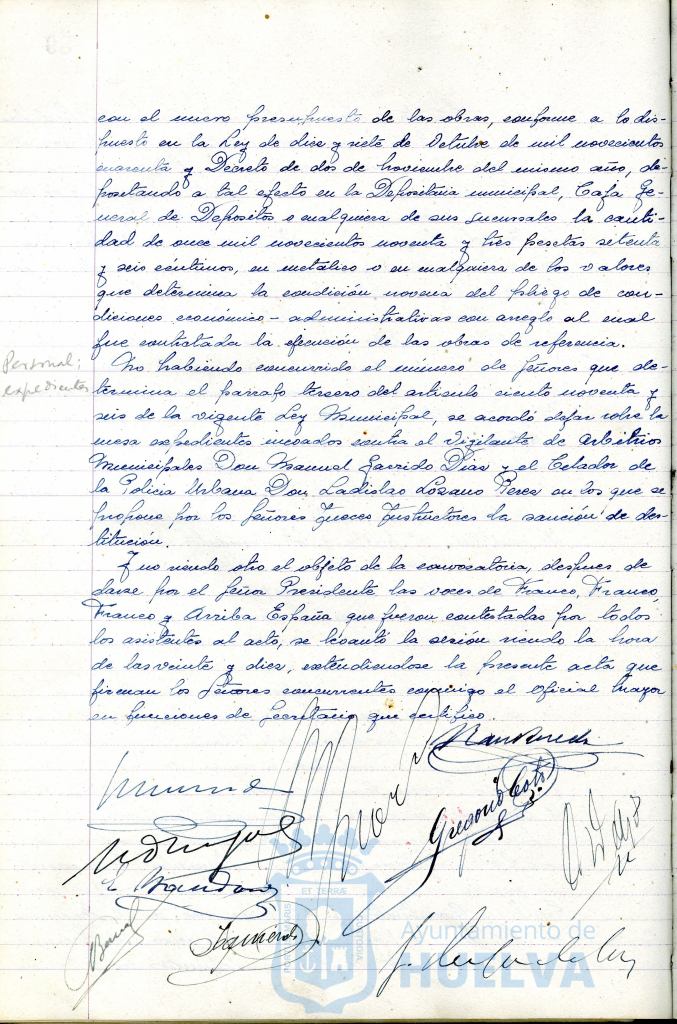 con el nuevo presupuesto de las obras, conforme a lo dis-
puesto en la Ley de diez y siete de Octubre de mil novecientos
cuarenta y Decreto de dos de Noviembre del mismo año, de-
positando a tal efecto en la Depositaria municipal, Caja Ge-
neral de Depositos o cualquiera de sus sucursales la canti-
dad de once mil novecientos noventa y tres pesetas setenta
y seis céntimos, en metálico o en cualquiera de los valores
que determina la condición novena del pliego de con-
diciones económico-administrativas con arreglo al cual
fue contratada la ejecución de las obras de referencia.
Personal;
expedientes
No habiendo concurrido el número de Señores que de-
termina el parrafo tercero del articulo ciento noventa y
seis de la vigente Ley Municipal, se acordó dejar sobre la
mesa expedientes incoados contra el Vigilante de Arbitrios
Municipales Don Manuel Garrido Diaz y el Celador de
la Policia Urbana Don Ladislao Lozano Perez en los que se
propone por los Señores Jueces Instructores la sanción de des-
titución.
Y no siendo otro el objeto de la convocatoria, despues de
darse por el Señor Presidente las voces de Franco, Franco,
Franco y Arriba España que fueron contestadas por todos
los asistentes al acto, se levantó la sesión siendo la hora
de las veinte y diez, extendiendose la presente acta que
firman los Señores concurrentes conmigo el Oficial Mayor
en funciones de Secretario que certifico.
Gregorio
Ayuntamiento de
HUELVA